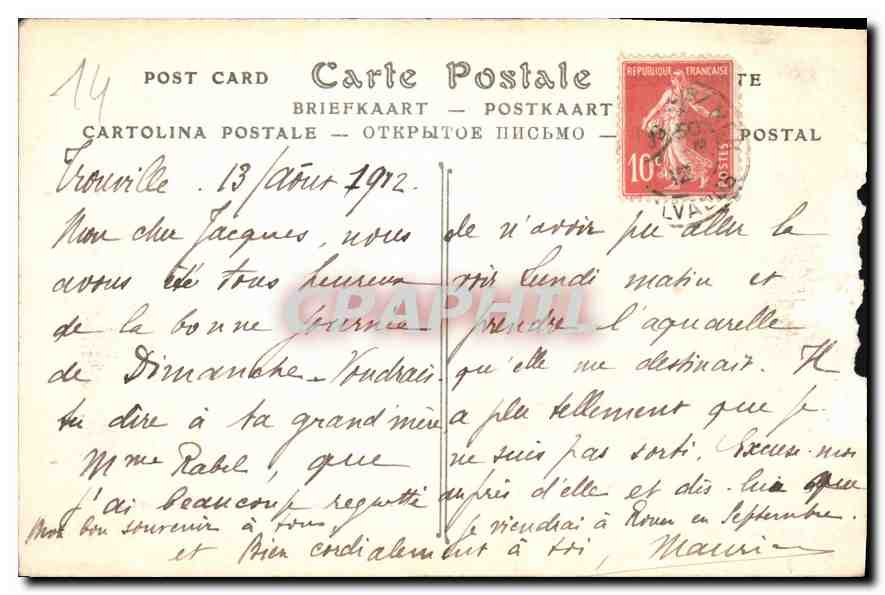 14
POST CARD Carte Postale TE
BRIEFKAART — POSTKAART
CARTOLINA POSTALE — ОТКРЫТОЕ ПИСЬМО — POSTAL
REPUBLIQUE FRANÇAISE
10c POSTES
LVADOS
Trouville . 13 Août 1912.
Mon cher Jacques, nous
avons été tous heureux
de la bonne journée
de Dimanche - Voudrais-
tu dire à ta grand'mère,
Mme Rabel, que
j'ai beaucoup regretté
de n'avoir pu aller la
voir Lundi matin et
prendre l'aquarelle
qu'elle me destinait. Il
a plu tellement que je
ne suis pas sorti. Excuse-moi
auprès d'elle et dis-lui que
je viendrai à Rouen en Septembre.
Mon bon souvenir à tous
et Bien cordialement à toi, Maurice
CPAPHIL